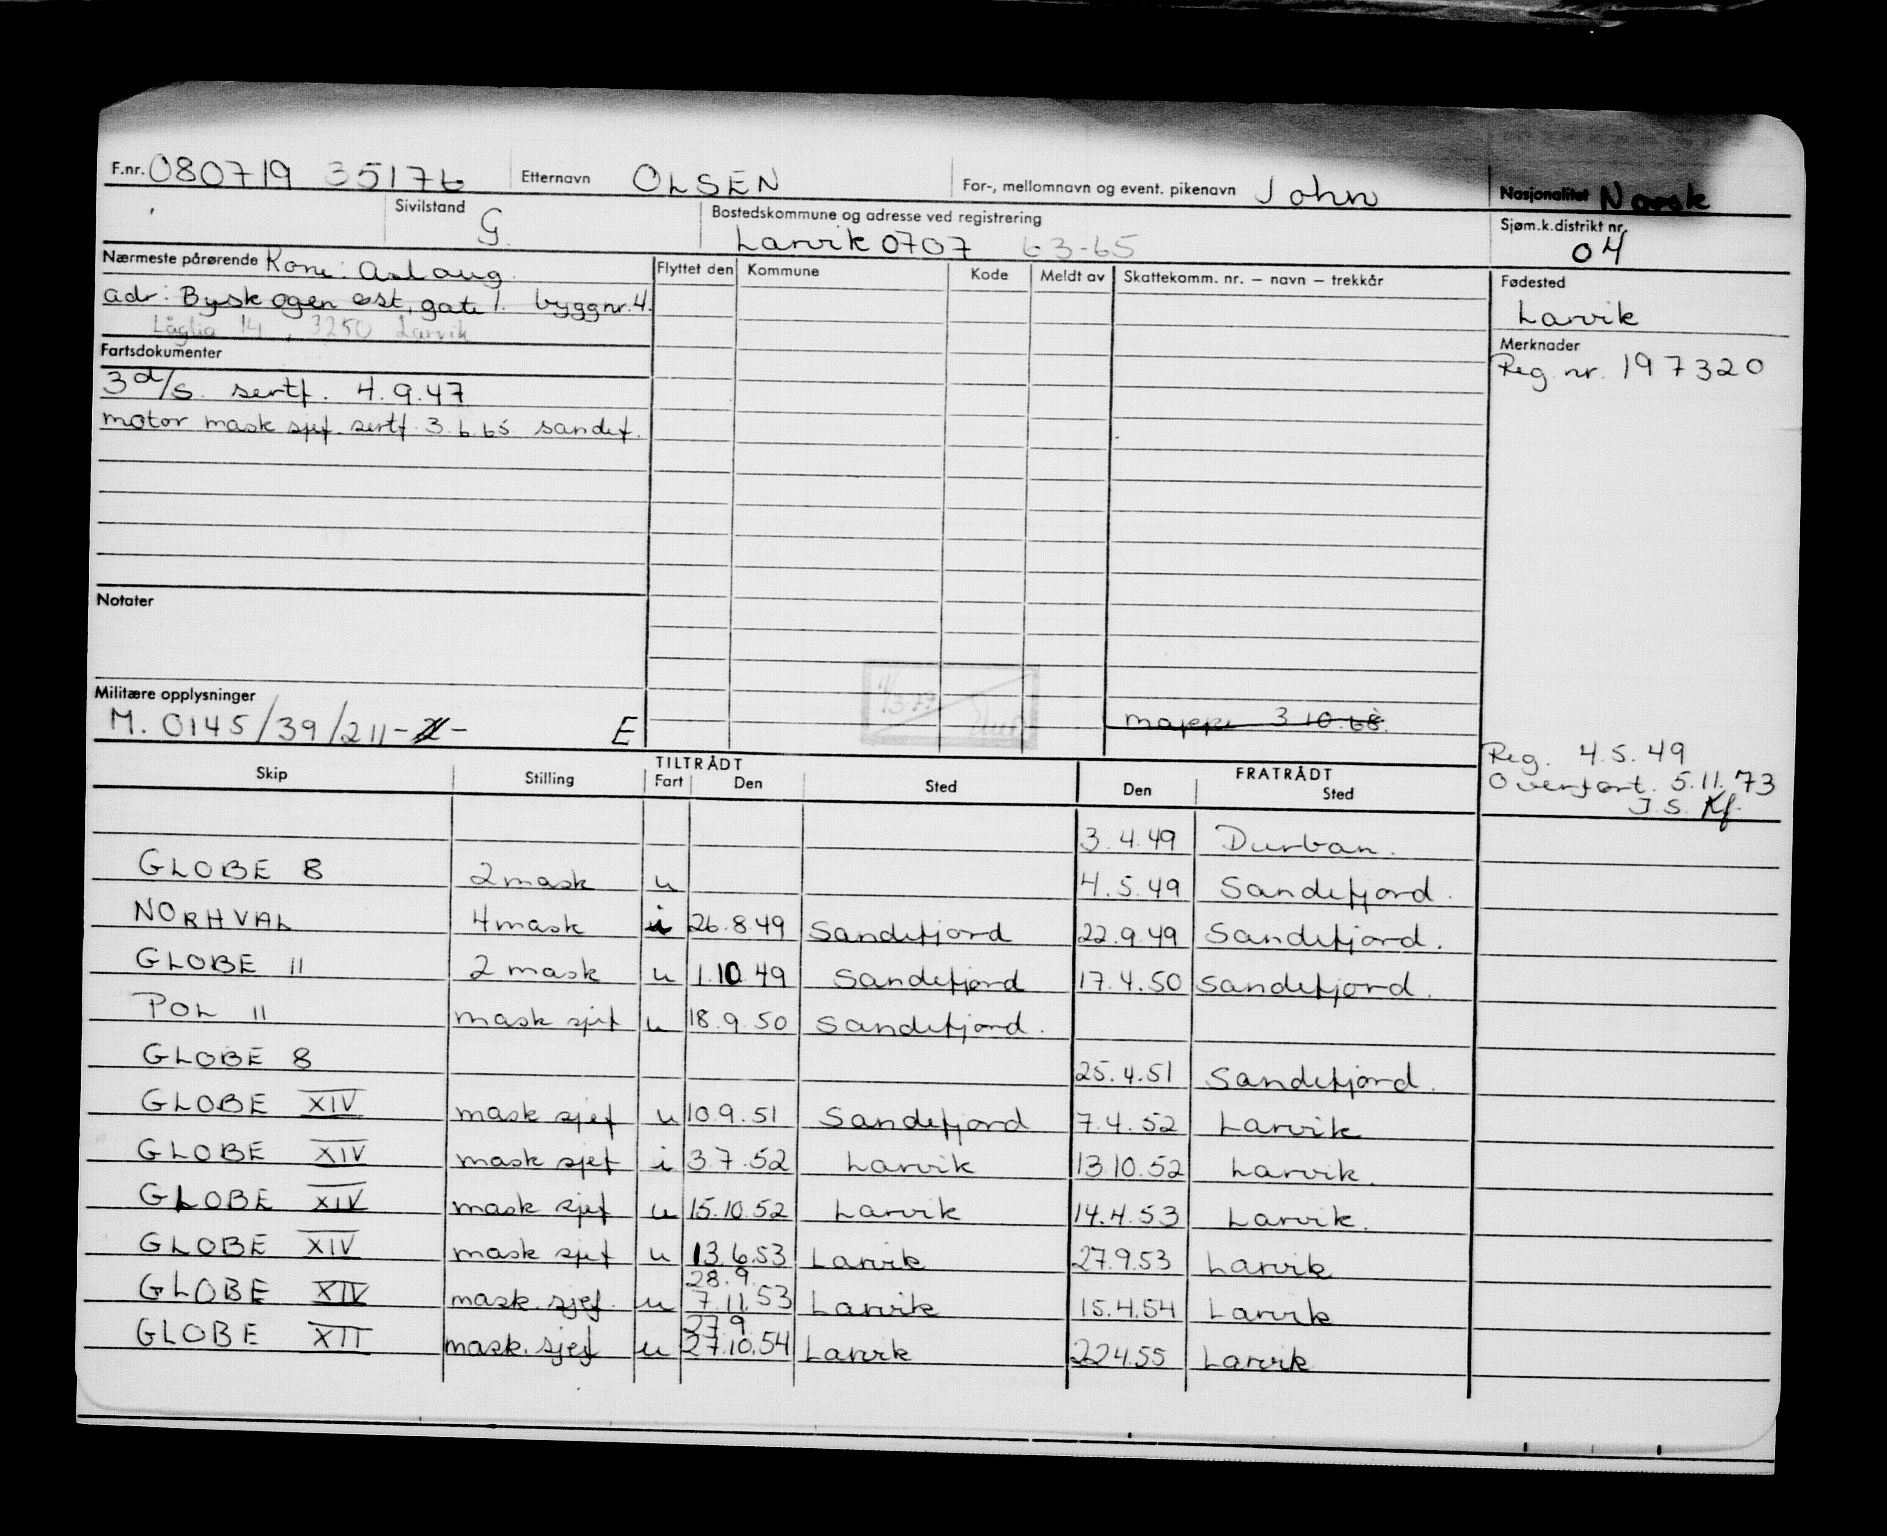 F.nr. 080719 35176 Etternavn OLSEN For-, mellomnavn og event. pikenavn John Nasjonalitet Norsk
Sivilstand G. Bostedskommune og adresse ved registrering Larvik 0707 63-65 Sjøm.k.distrikt nr. 04
Nærmeste pårørende Kone: Aslaug. Flyttet den Kommune Kode Meldt av Skattekomm. nr. – navn – trekkår Fødested
adr: Byskogen øst, gate 1. byggnr. 4. Larvik
Låglia 14, 3250 Larvik
Fartsdokumenter Merknader
3 d/s. sertf. 4.9.47 Reg. nr. 197320
motor mask sjef. sertf. 3.6.65 Sandef.
Notater
Militære opplysninger mappe 3.10.68.
M. 0145/39/211- - E
Reg. 4.5.49
Overført. 5.11.73
J.S. Kf.
TILTRÅDT FRATRÅDT
Skip Stilling Fart Den Sted Den Sted
3.4.49 Durban.
GLOBE 8 2 mask u 4.5.49 Sandefjord.
NORHVAL 4 mask i 26.8.49 Sandefjord 22.9.49 Sandefjord.
GLOBE 11 2 mask u 1.10.49 Sandefjord 17.4.50 Sandefjord.
POL 11 mask sjef u 18.9.50 Sandefjord.
GLOBE 8 25.4.51 Sandefjord.
GLOBE XIV mask sjef u 10.9.51 Sandefjord 7.4.52 Larvik
GLOBE XIV mask sjef i 3.7.52 Larvik 13.10.52 Larvik.
GLOBE XIV mask sjef u 15.10.52 Larvik 14.4.53 Larvik.
GLOBE XIV mask sjef u 13.6.53 Larvik 27.9.53 Larvik
28.9.
GLOBE XIV mask. sjef. u 7.11.53 Larvik 15.4.54 Larvik
27.9
GLOBE XII mask. sjef u 27.10.54 Larvik 22.4.55 Larvik